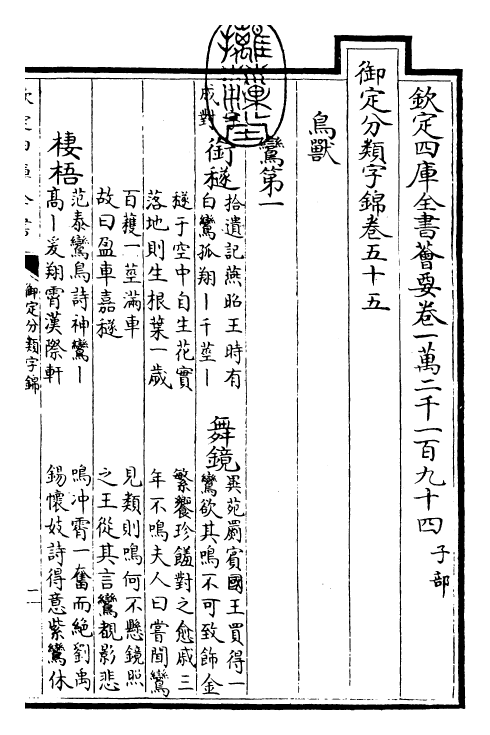 欽定四庫全書薈要卷一萬二千一百九十四 子部
御定分類字錦卷五十五
鳥獸
鸞第一
成對
銜穟
拾遺記燕昭王時有
白鸞孤翔丨千莖丨
穟于空中自生花實
落地則生根葉一歲
百穫一莖滿車
故曰盈車嘉穟
舞鏡
異苑罽賓國王買得一
鸞欲其鳴不可致飾金
繁饗珍饈對之愈戚三
年不鳴夫人曰嘗聞鸞
見類則鳴何不懸鏡照
之王從其言鸞覩影悲
鳴冲霄一奮而絶劉禹
錫懷妓詩得意紫鸞休
棲梧
范泰鸞鳥詩神鸞丨
高丨爰翔霄漢際軒
御定分類字錦